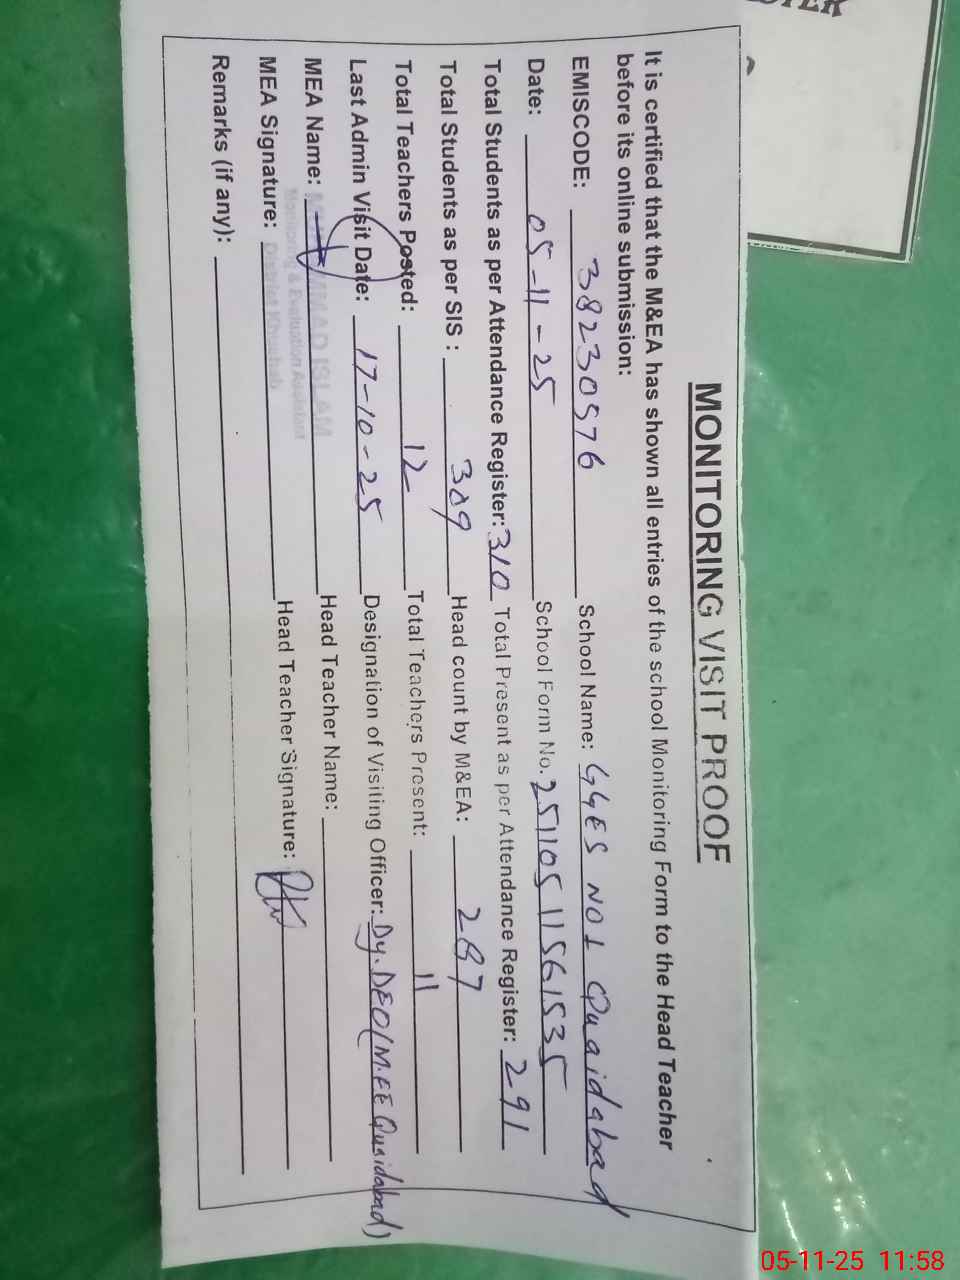 MONITORING VISIT PROOF
It is certified that the M&EA has shown all entries of the school Monitoring Form to the Head Teacher
before its online submission:
EMISCODE: 38230576 School Name: GGES NO1 Quaidabad
Date: 05-11-25 School Form No. 251105 11561535
Total Students as per Attendance Register: 310 Total Present as per Attendance Register: 291
Total Students as per SIS : 309 Head count by M&EA: 287
Total Teachers Posted: 12 Total Teachers Present: 11
Last Admin Visit Date: 17-10-25 Designation of Visiting Officer: Dy. DEO (M.EE Quaidabad)
MEA Name: MUHAMMAD ISLAM Head Teacher Name:
Monitoring & Evaluation Assistant
MEA Signature: District Khushab Head Teacher Signature:
Remarks (if any):
05-11-25 11:58